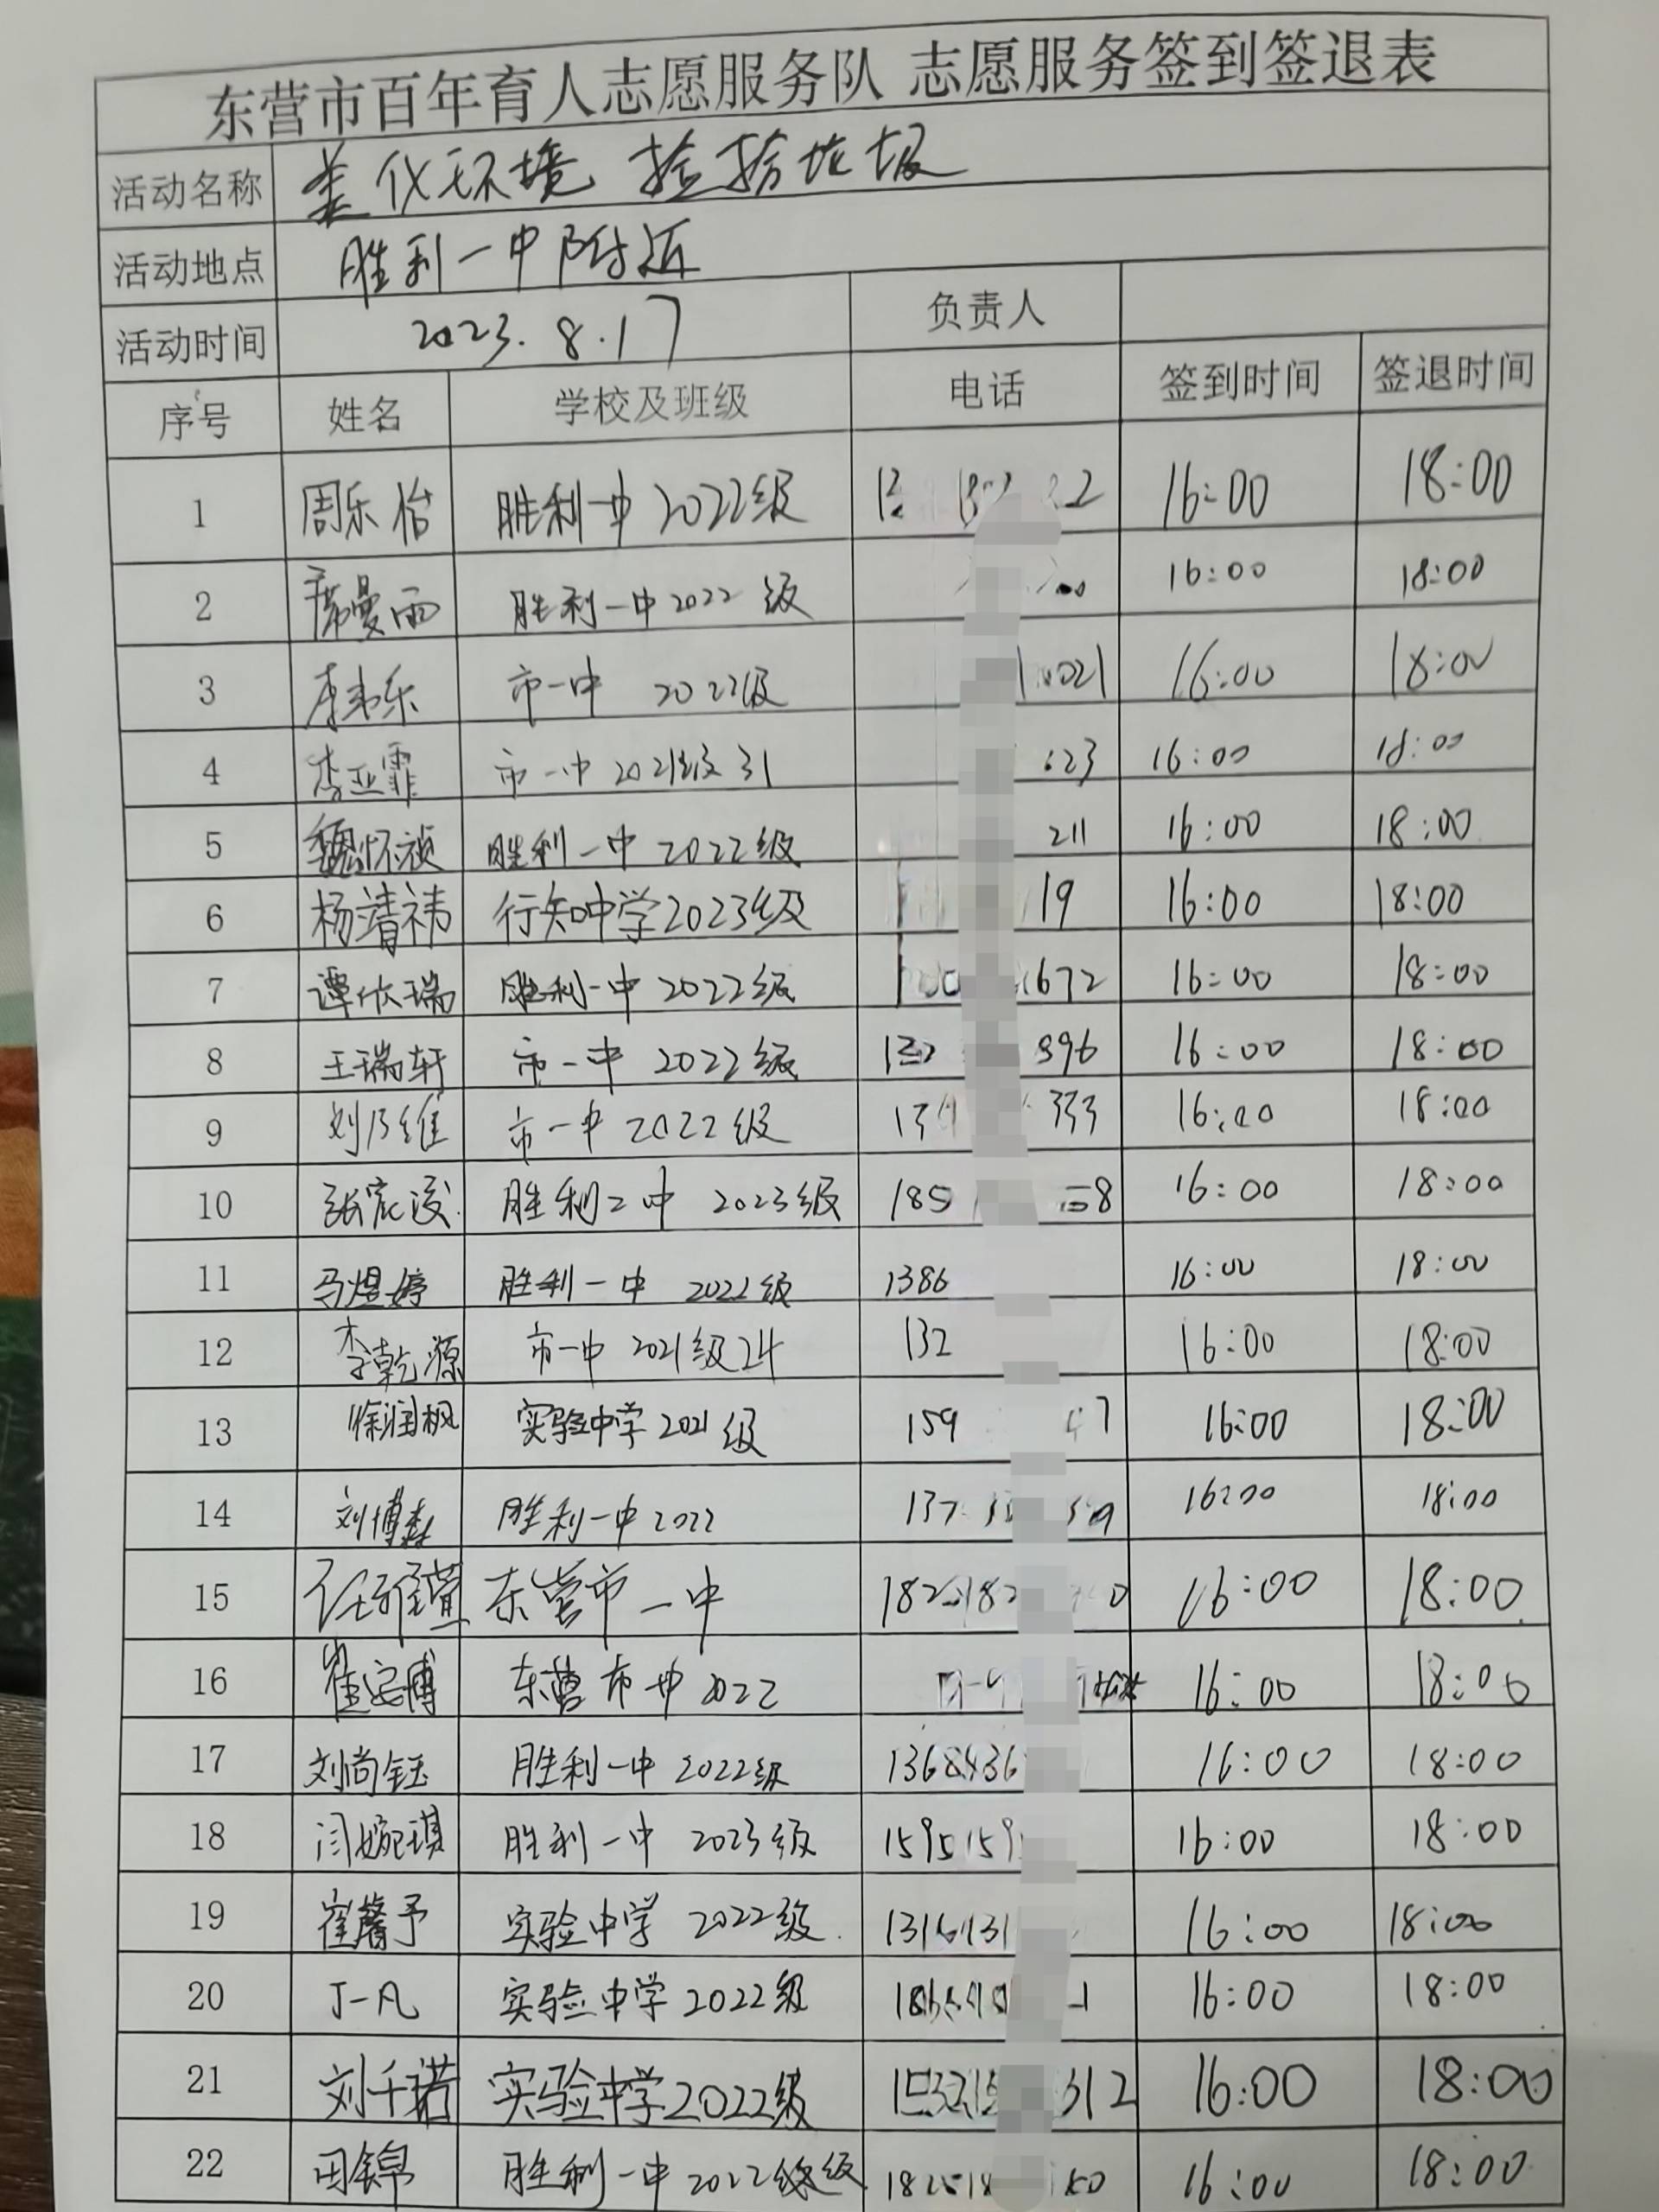 东营市百年育人志愿服务队 志愿服务签到签退表
活动名称 美化环境 捡拾垃圾
活动地点 胜利一中附近
活动时间 2023.8.17 负责人
序号 姓名 学校及班级 电话 签到时间 签退时间
1 周乐怡 胜利一中 2022级 16:00 18:00
2 曼雨 胜利一中2022级 16:00 18:00
3 李 乐 市一中 2022级 021 16:00 18:00
4 李亚霏 市一中2021级31 623 16:00 18:00
5 魏怀祯 胜利一中 2022级 211 16:00 18:00
6 杨靖祎 行知中学2023级 19 16:00 18:00
7 谭欣瑞 胜利一中 2022级 672 16:00 18:00
8 王瑞轩 市一中 2022级 396 16:00 18:00
9 刘乃维 市一中 2022级 333 16:00 18:00
10 张宸 胜利二中 2023级 185 58 16:00 18:00
11 马煜婷 胜利一中 2022级 1386 16:00 18:00
12 李乾源 市一中 2021级24 132 16:00 18:00
13 徐润枫 实验中学2021级 159 7 16:00 18:00
14 刘博森 胜利一中2022 137 16:00 18:00
15 任雅萱 东营市一中 182 182 0 16:00 18:00
16 崔安博 东营市一中2022 16:00 18:00
17 刘尚钰 胜利一中 2022级 1368 436 16:00 18:00
18 闫婉琪 胜利一中 2023级 1595 159 16:00 18:00
19 崔馨予 实验中学 2022级 1316 131 16:00 18:00
20 丁一凡 实验中学2022级 186 1 16:00 18:00
21 刘千诺 实验中学2022级 1532 15 312 16:00 18:00
22 田锦 胜利一中2022级 182 18 50 16:00 18:00